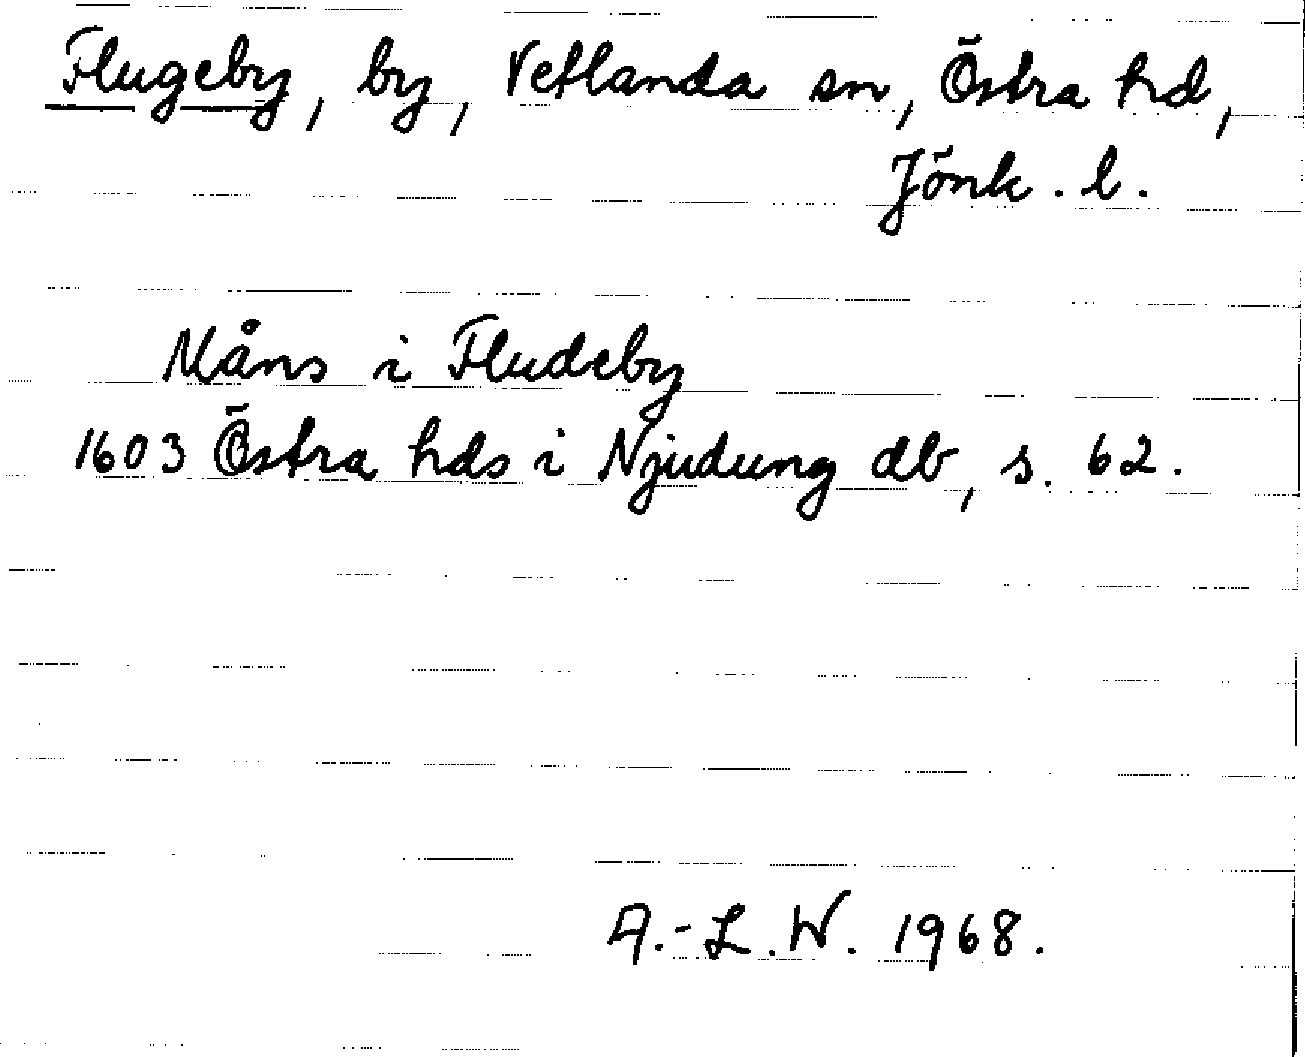 Flugeby, by, Vetlanda sn, Östra hd,
Jönk. l.
Måns i Fludeby
1603 Östra hds i Njudung db, s. 62.
A.-L.W. 1968.